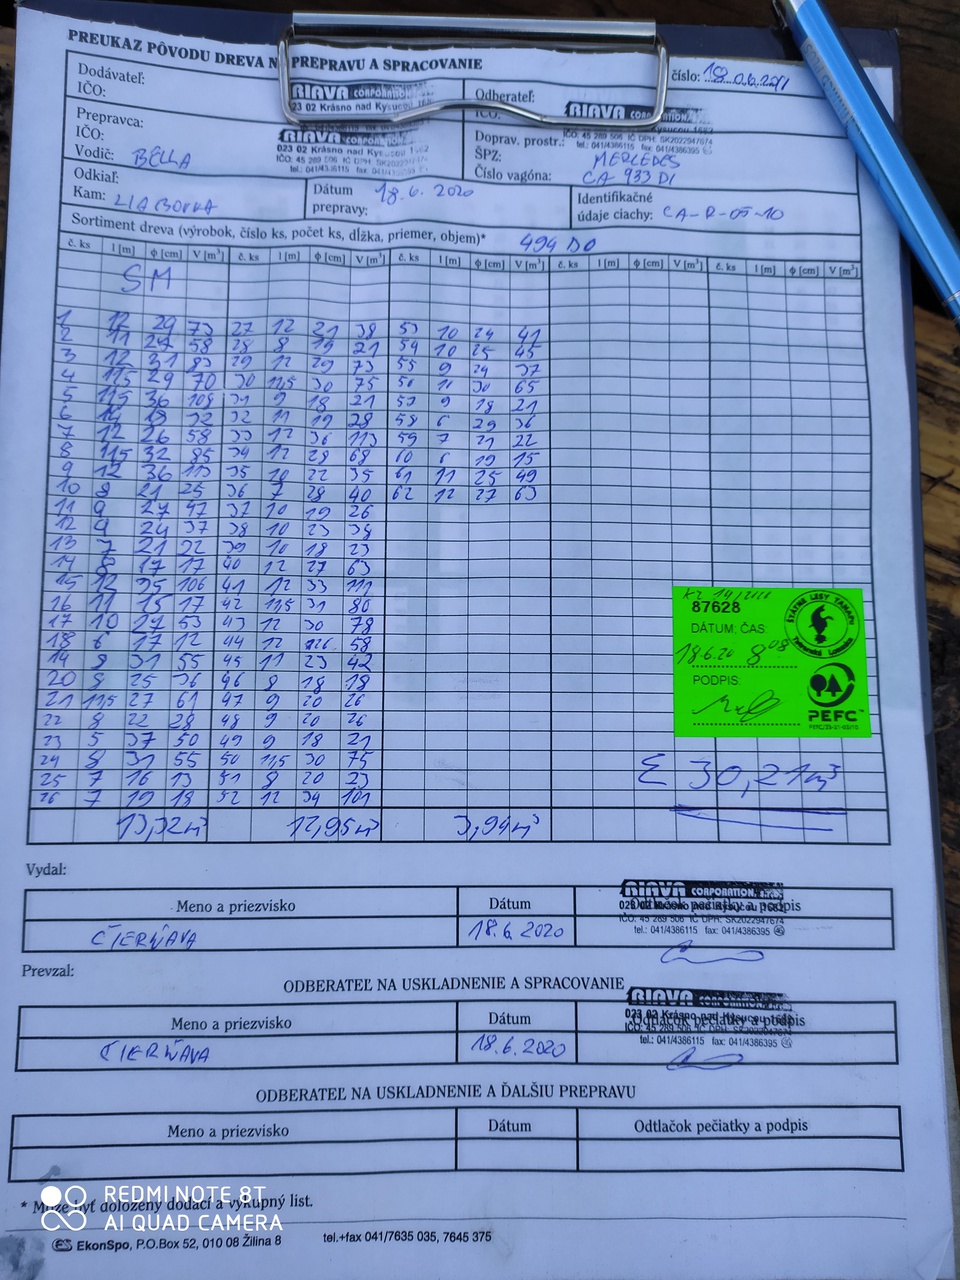 PREUKAZ PÔVODU DREVA N PREPRAVU A SPRACOVANIE
číslo:
Dodávateľ:
IČO:
RIAVA CORPORATION
23 02 Krásno nad Kysucou 1682
Odberateľ:
IČO:
RIAVA CORPORATION
IČO: 45 289 506 IČ DPH: SK2022947674
tel.: 041/4386115 fax: 041/4386395
Prepravca:
IČO:
Vodič: BELLA
RIAVA CORPORATION
023 02 Krásno nad Kysucou 1682
IČO: 45 289 506 IČ DPH: SK2022947674
tel.: 041/4386115 fax: 041/4386395
Doprav. prostr.:
ŠPZ: MERCEDES
Číslo vagóna: CA 933 DI
Odkiaľ:
Kam: LIABOVKA
Dátum
prepravy: 18.6.2020
Identifikačné
údaje ciachy: CA-R-05-10
Sortiment dreva (výrobok, číslo ks, počet ks, dĺžka, priemer, objem)* 494 DO
č. ks l [m] ϕ [cm] V [m³] č. ks l [m] ϕ [cm] V [m³] č. ks l [m] ϕ [cm] V [m³] č. ks l [m] ϕ [cm] V [m³] č. ks l [m] ϕ [cm] V [m³]
SM
1 12 29 73 27 12 21 38 53 10 24 41
2 11 27 58 28 8 19 21 54 10 25 45
3 12 31 83 29 12 29 73 55 9 24 37
4 11,5 29 70 30 11,5 30 75 56 11 30 65
5 11,5 36 108 31 9 18 21 57 9 18 21
6 14 32 32 11 19 28 58 6 29 36
7 12 26 58 33 12 36 113 59 7 21 22
8 11,5 32 85 34 12 28 68 60 6 19 15
9 12 36 113 35 10 22 35 61 11 25 49
10 8 21 25 36 7 28 40 62 12 27 63
11 9 27 47 37 10 19 26
12 9 24 37 38 10 23 38
13 7 21 22 39 10 18 23
14 8 17 17 40 12 27 63
15 12 35 106 41 12 33 111
16 11 15 17 42 11,5 31 80
17 10 27 53 43 12 30 78
18 6 17 12 44 12 26 58
19 8 31 55 45 11 23 42
20 8 25 36 46 8 18 18
21 11,5 27 61 47 9 20 26
22 8 22 28 48 9 20 26
23 5 37 50 49 9 18 21
24 8 31 55 50 11,5 30 75
25 7 16 13 51 8 20 23
26 7 19 18 52 12 34 101
13,32m³ 12,95m³ 3,94m³
87628
DÁTUM; ČAS:
18.6.20 8⁰⁸
PODPIS:
ŠTÁTNE LESY TANAPU
Tatranská Lomnica
PEFC™
Σ 30,21m³
Vydal:
Meno a priezvisko Dátum Odtlačok pečiatky a podpis
ČIERŇAVA 18.6.2020
RIAVA CORPORATION
023 02 Krásno nad Kysucou 1682
IČO: 45 289 506 IČ DPH: SK2022947674
tel.: 041/4386115 fax: 041/4386395
Prevzal:
ODBERATEĽ NA USKLADNENIE A SPRACOVANIE
Meno a priezvisko Dátum Odtlačok pečiatky a podpis
ČIERŇAVA 18.6.2020
RIAVA CORPORATION
023 02 Krásno nad Kysucou 1682
IČO: 45 289 506 IČ DPH: SK2022947674
tel.: 041/4386115 fax: 041/4386395
ODBERATEĽ NA USKLADNENIE A ĎALŠIU PREPRAVU
Meno a priezvisko Dátum Odtlačok pečiatky a podpis
* Môže byť doložený dodací a výkupný list.
REDMI NOTE 8T
AI QUAD CAMERA
EkonSpo, P.O.Box 52, 010 08 Žilina 8 tel.+fax 041/7635 035, 7645 375